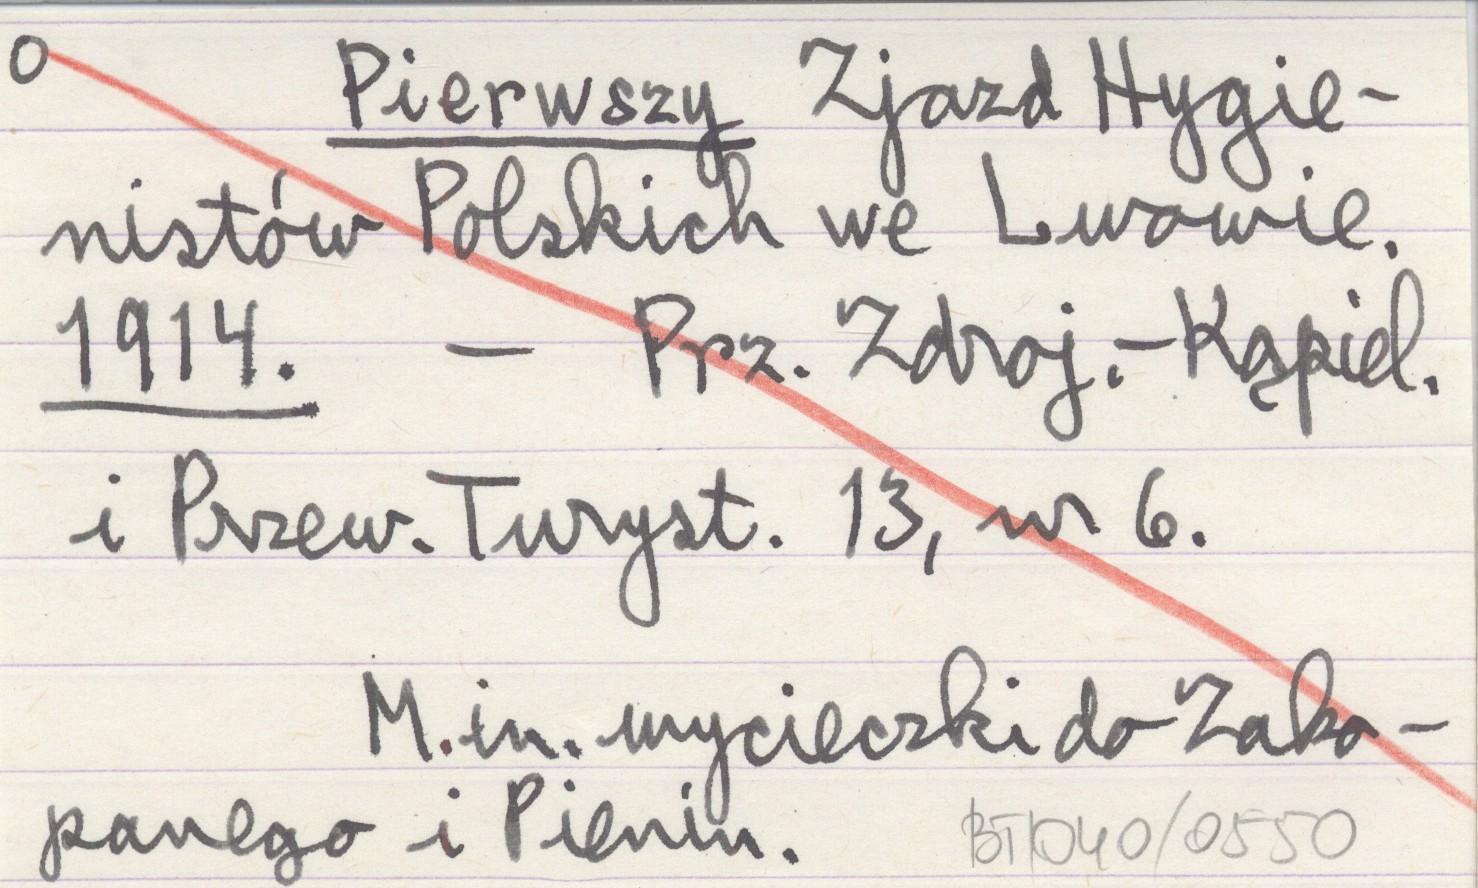 O Pierwszy Zjazd Hygie-
nistów Polskich we Lwowie.
1914. — Prz. Zdroj.-Kąpiel.
i Przew. Turyst. 13, nr 6.
M.in. wycieczki do Zako-
panego i Pienin.
BT/040/0550